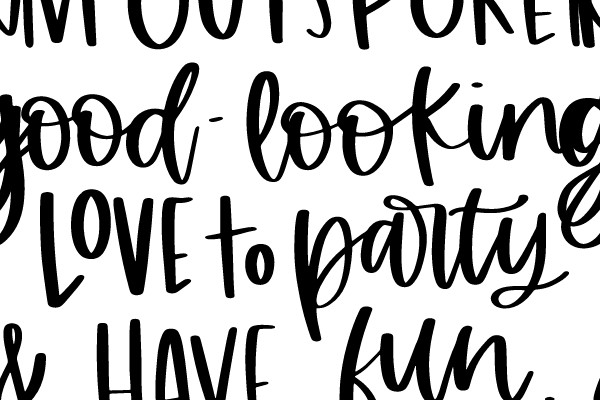 OUTSPOKEN
good-looking
LOVE to party
& HAVE fun.